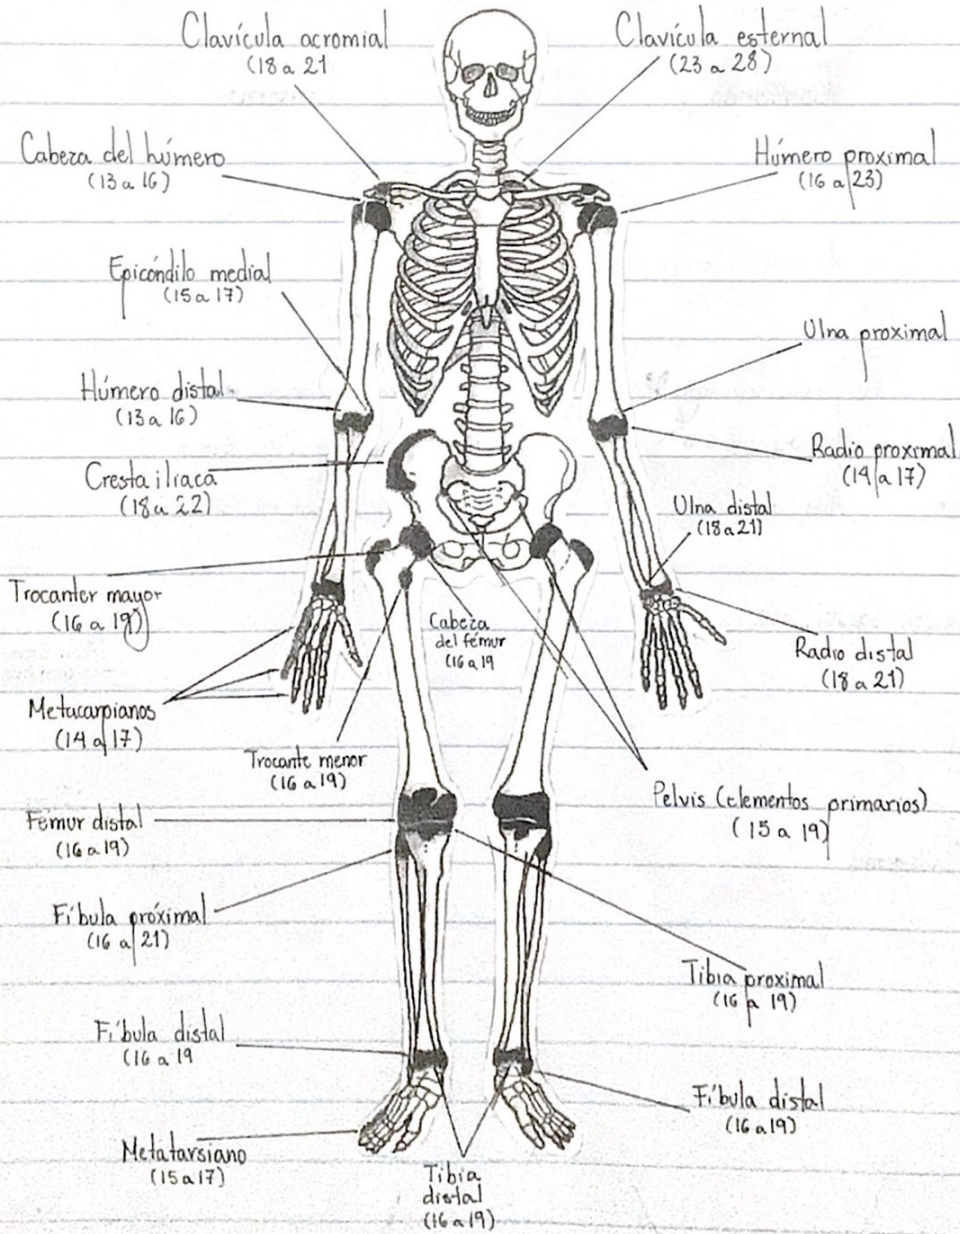 Clavícula acromial
(18 a 21
Clavícula esternal
(23 a 28)
Cabeza del húmero
(13 a 16)
Húmero proximal
(16 a 23)
Epicóndilo medial
(15 a 17)
Ulna proximal
Húmero distal
(13 a 16)
Radio proximal
(14 a 17)
Cresta iliaca
(18 a 22)
Ulna distal
(18 a 21)
Trocanter mayor
(16 a 19)
Cabeza
del fémur
(16 a 19
Radio distal
(18 a 21)
Metacarpianos
(14 a 17)
Trocante menor
(16 a 19)
Pelvis (elementos primarios)
(15 a 19)
Femur distal
(16 a 19)
Fíbula próximal
(16 a 21)
Tibia proximal
(16 a 19)
Fíbula distal
(16 a 19
Fíbula distal
(16 a 19)
Metatarsiano
(15 a 17)
Tibia
distal
(16 a 19)